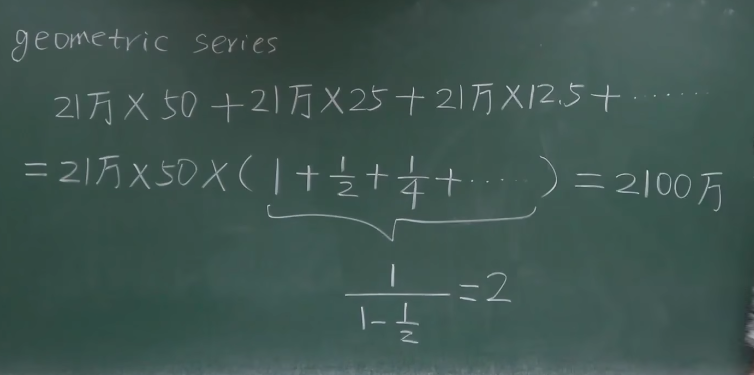 geometric series
21万×50+21万×25+21万×12.5+……
=21万×50×(1+1/2+1/4+……)=2100万
1/(1-1/2)=2